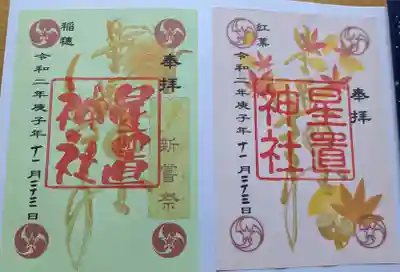 奉拝
新嘗祭
星置
神社
稲穂
令和二年庚子年十一月二十三日
紅葉
奉拝
星置
神社
令和二年庚子年十一月二十三日